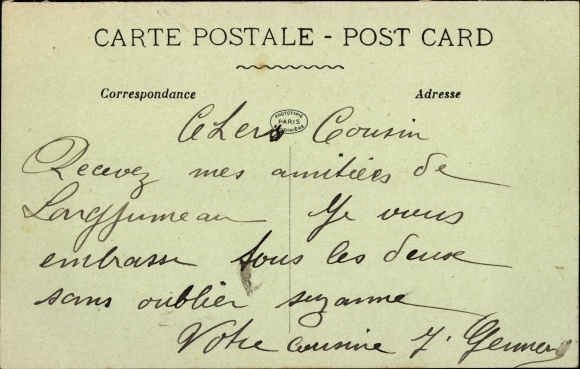 CARTE POSTALE - POST CARD
Correspondance
Adresse
PHOTOTYPIE
PARIS
Chers Cousin
Recevez mes amitiées de
Longjumeau Je vous
embrasse tous les deux
sans oublier suzanne
Votre cousine J.